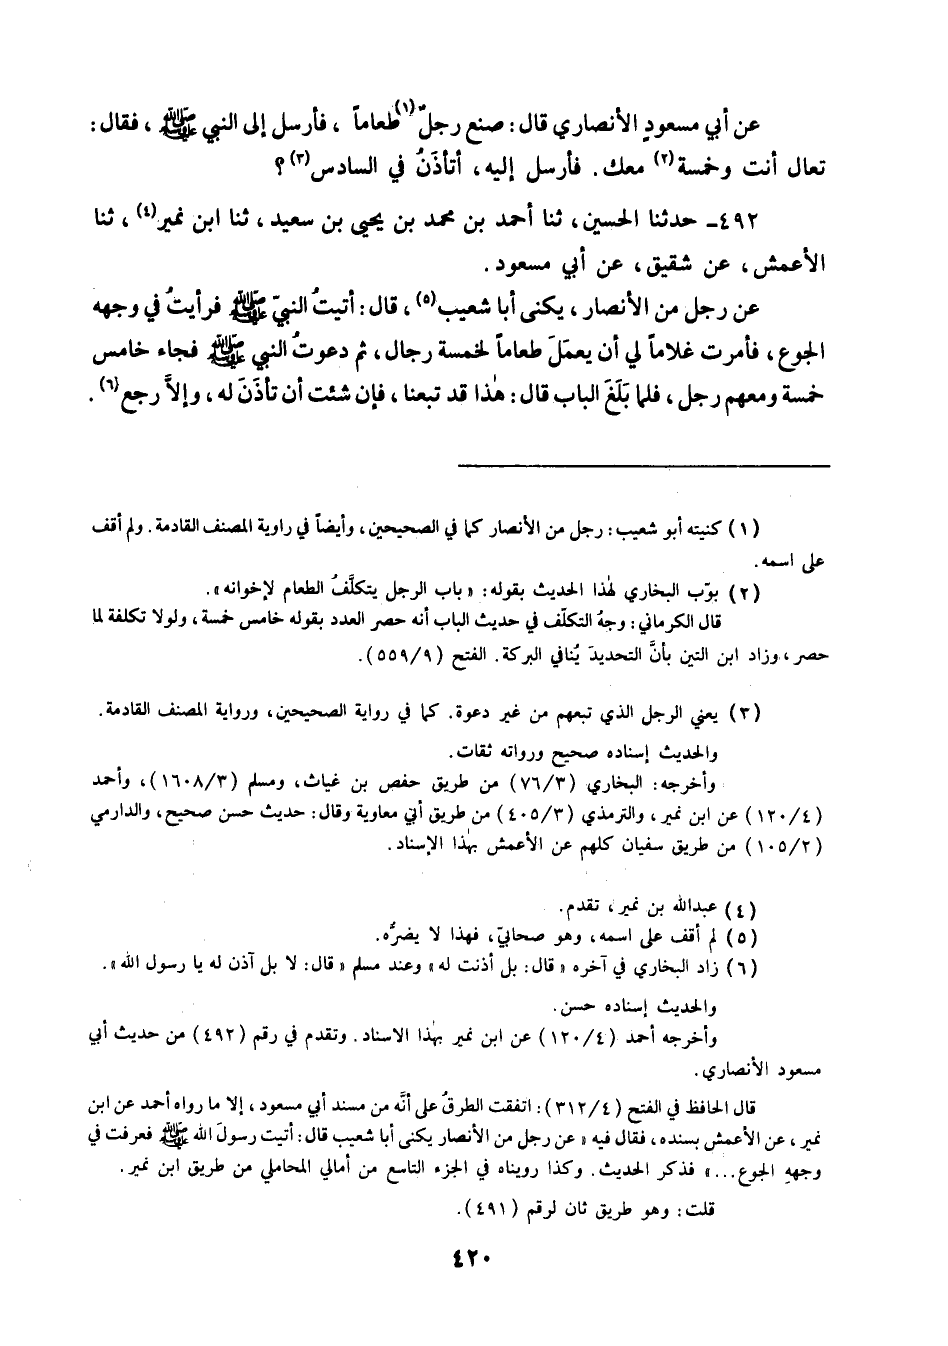 عن أبي مسعودٍ الأنصاري قال: صنع رجلٌ(١) طعاماً، فأرسل إلى النبي ﷺ، فقال:
تعال أنت وخمسة(٢) معك. فأرسل إليه، أتأذَنُ في السادس(٣)؟
٤٩٢- حدثنا الحسين، ثنا أحمد بن محمد بن يحيى بن سعيد، ثنا ابن نمير(٤)، ثنا
الأعمش، عن شقيق، عن أبي مسعود.
عن رجل من الأنصار، يكنى أبا شعيب(٥)، قال: أتيتُ النبيّ ﷺ فرأيتُ في وجهه
الجوع، فأمرت غلاماً لي أن يعمَلَ طعاماً لخمسة رجال، ثم دعوتُ النبي ﷺ فجاء خامس
خمسة ومعهم رجل، فلما بَلَغَ الباب قال: هٰذا قد تبعنا، فإن شئت أن تأذَنَ له، وإلاَّ رجع(٦).
(١) كنيته أبو شعيب: رجل من الأنصار كما في الصحيحين، وأيضاً في راوية المصنف القادمة. ولم أقف
على اسمه.
(٢) بوّب البخاري لهٰذا الحديث بقوله: «باب الرجل يتكلَّفُ الطعام لإخوانه».
قال الكرماني: وجهُ التكلّف في حديث الباب أنه حصر العدد بقوله خامس خمسة، ولولا تكلفة لما
حصر، وزاد ابن التين بأنَّ التحديدَ يُنافي البركة. الفتح (٥٥٩/٩).
(٣) يعني الرجل الذي تبعهم من غير دعوة. كما في رواية الصحيحين، ورواية المصنف القادمة.
والحديث إسناده صحيح ورواته ثقات.
وأخرجه: البخاري (٧٦/٣) من طريق حفص بن غياث، ومسلم (١٦٠٨/٣)، وأحمد
(١٢٠/٤) عن ابن نمير، والترمذي (٤٠٥/٣) من طريق أبي معاوية وقال: حديث حسن صحيح، والدارمي
(١٠٥/٢) من طريق سفيان كلهم عن الأعمش بهٰذا الإسناد.
(٤) عبدالله بن نمير، تقدم.
(٥) لم أقف على اسمه، وهو صحابيّ، فهذا لا يضرُّه.
(٦) زاد البخاري في آخره «قال: بل أذنت له» وعند مسلم «قال: لا بل آذن له يا رسول الله».
والحديث إسناده حسن.
وأخرجه أحمد (١٢٠/٤) عن ابن نمير بهٰذا الاسناد. وتقدم في رقم (٤٩٢) من حديث أبي
مسعود الأنصاري.
قال الحافظ في الفتح (٣١٢/٤): اتفقت الطرقُ على أنَّه من مسند أبي مسعود، إلا ما رواه أحمد عن ابن
نمير، عن الأعمش بسنده، فقال فيه «عن رجل من الأنصار يكنى أبا شعيب قال: أتيت رسولَ الله ﷺ فعرفت في
وجههِ الجوع...» فذكر الحديث. وكذا رويناه في الجزء التاسع من أمالي المحاملي من طريق ابن نمير.
قلت: وهو طريق ثان لرقم (٤٩١).
٤٢٠